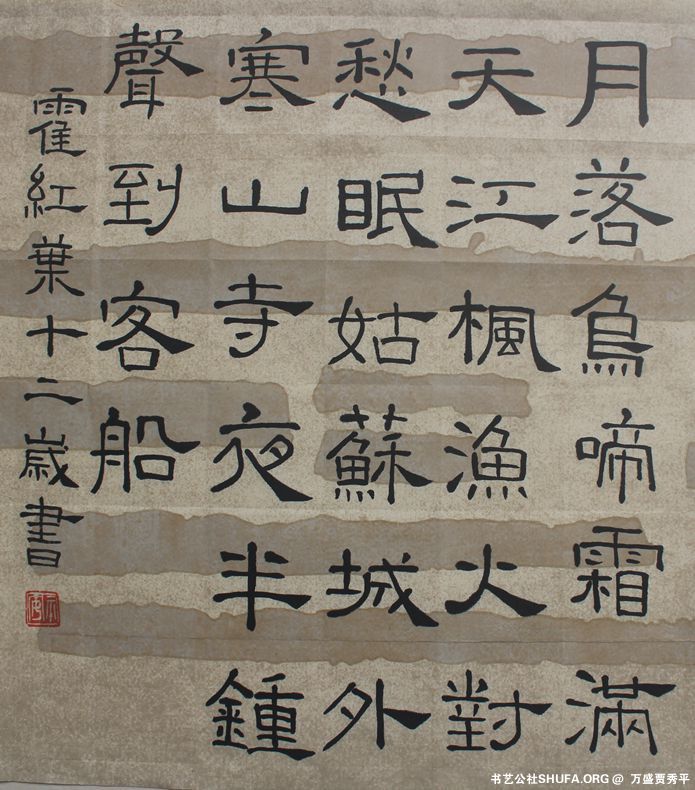 月落烏啼霜滿
天江楓漁火對
愁眠姑蘇城外
寒山寺夜半鍾
聲到客船
霍紅葉十二歲書
书艺公社SHUFA.ORG @ 万盛贾秀平